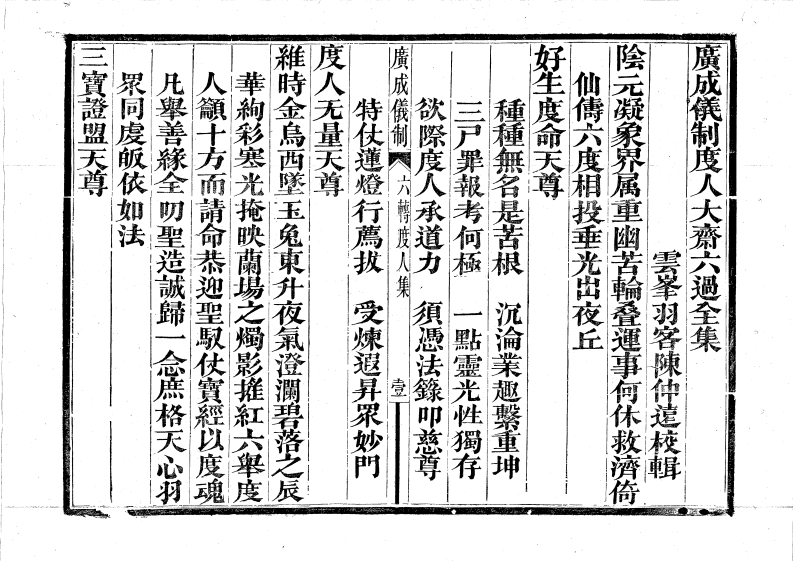 廣成儀制度人大齋六過全集
雲峯羽客陳仲遠校輯
陰元凝象界属重幽苦輪叠運事何休救濟倚
仙儔六度相投垂光出夜丘
好生度命天尊
種種無名是苦根　沉淪業趣繫重坤
三尸罪報考何極　一點靈光性獨存
欲際度人承道力　須憑法籙叩慈尊
特仗蓮燈行薦拔　受煉遐昇眾妙門
廣成儀制　六轉度人集　壹
度人无量天尊
維時金烏西墜玉兔東升夜氣澄瀾碧落之辰
華絢彩寒光掩映蘭場之燭影搖紅六舉度
人籲十方而請命恭迎聖馭仗寶經以度魂
凡舉善緣全叨聖造誠歸一念庶格天心羽
眾同虔皈依如法
三寶證盟天尊